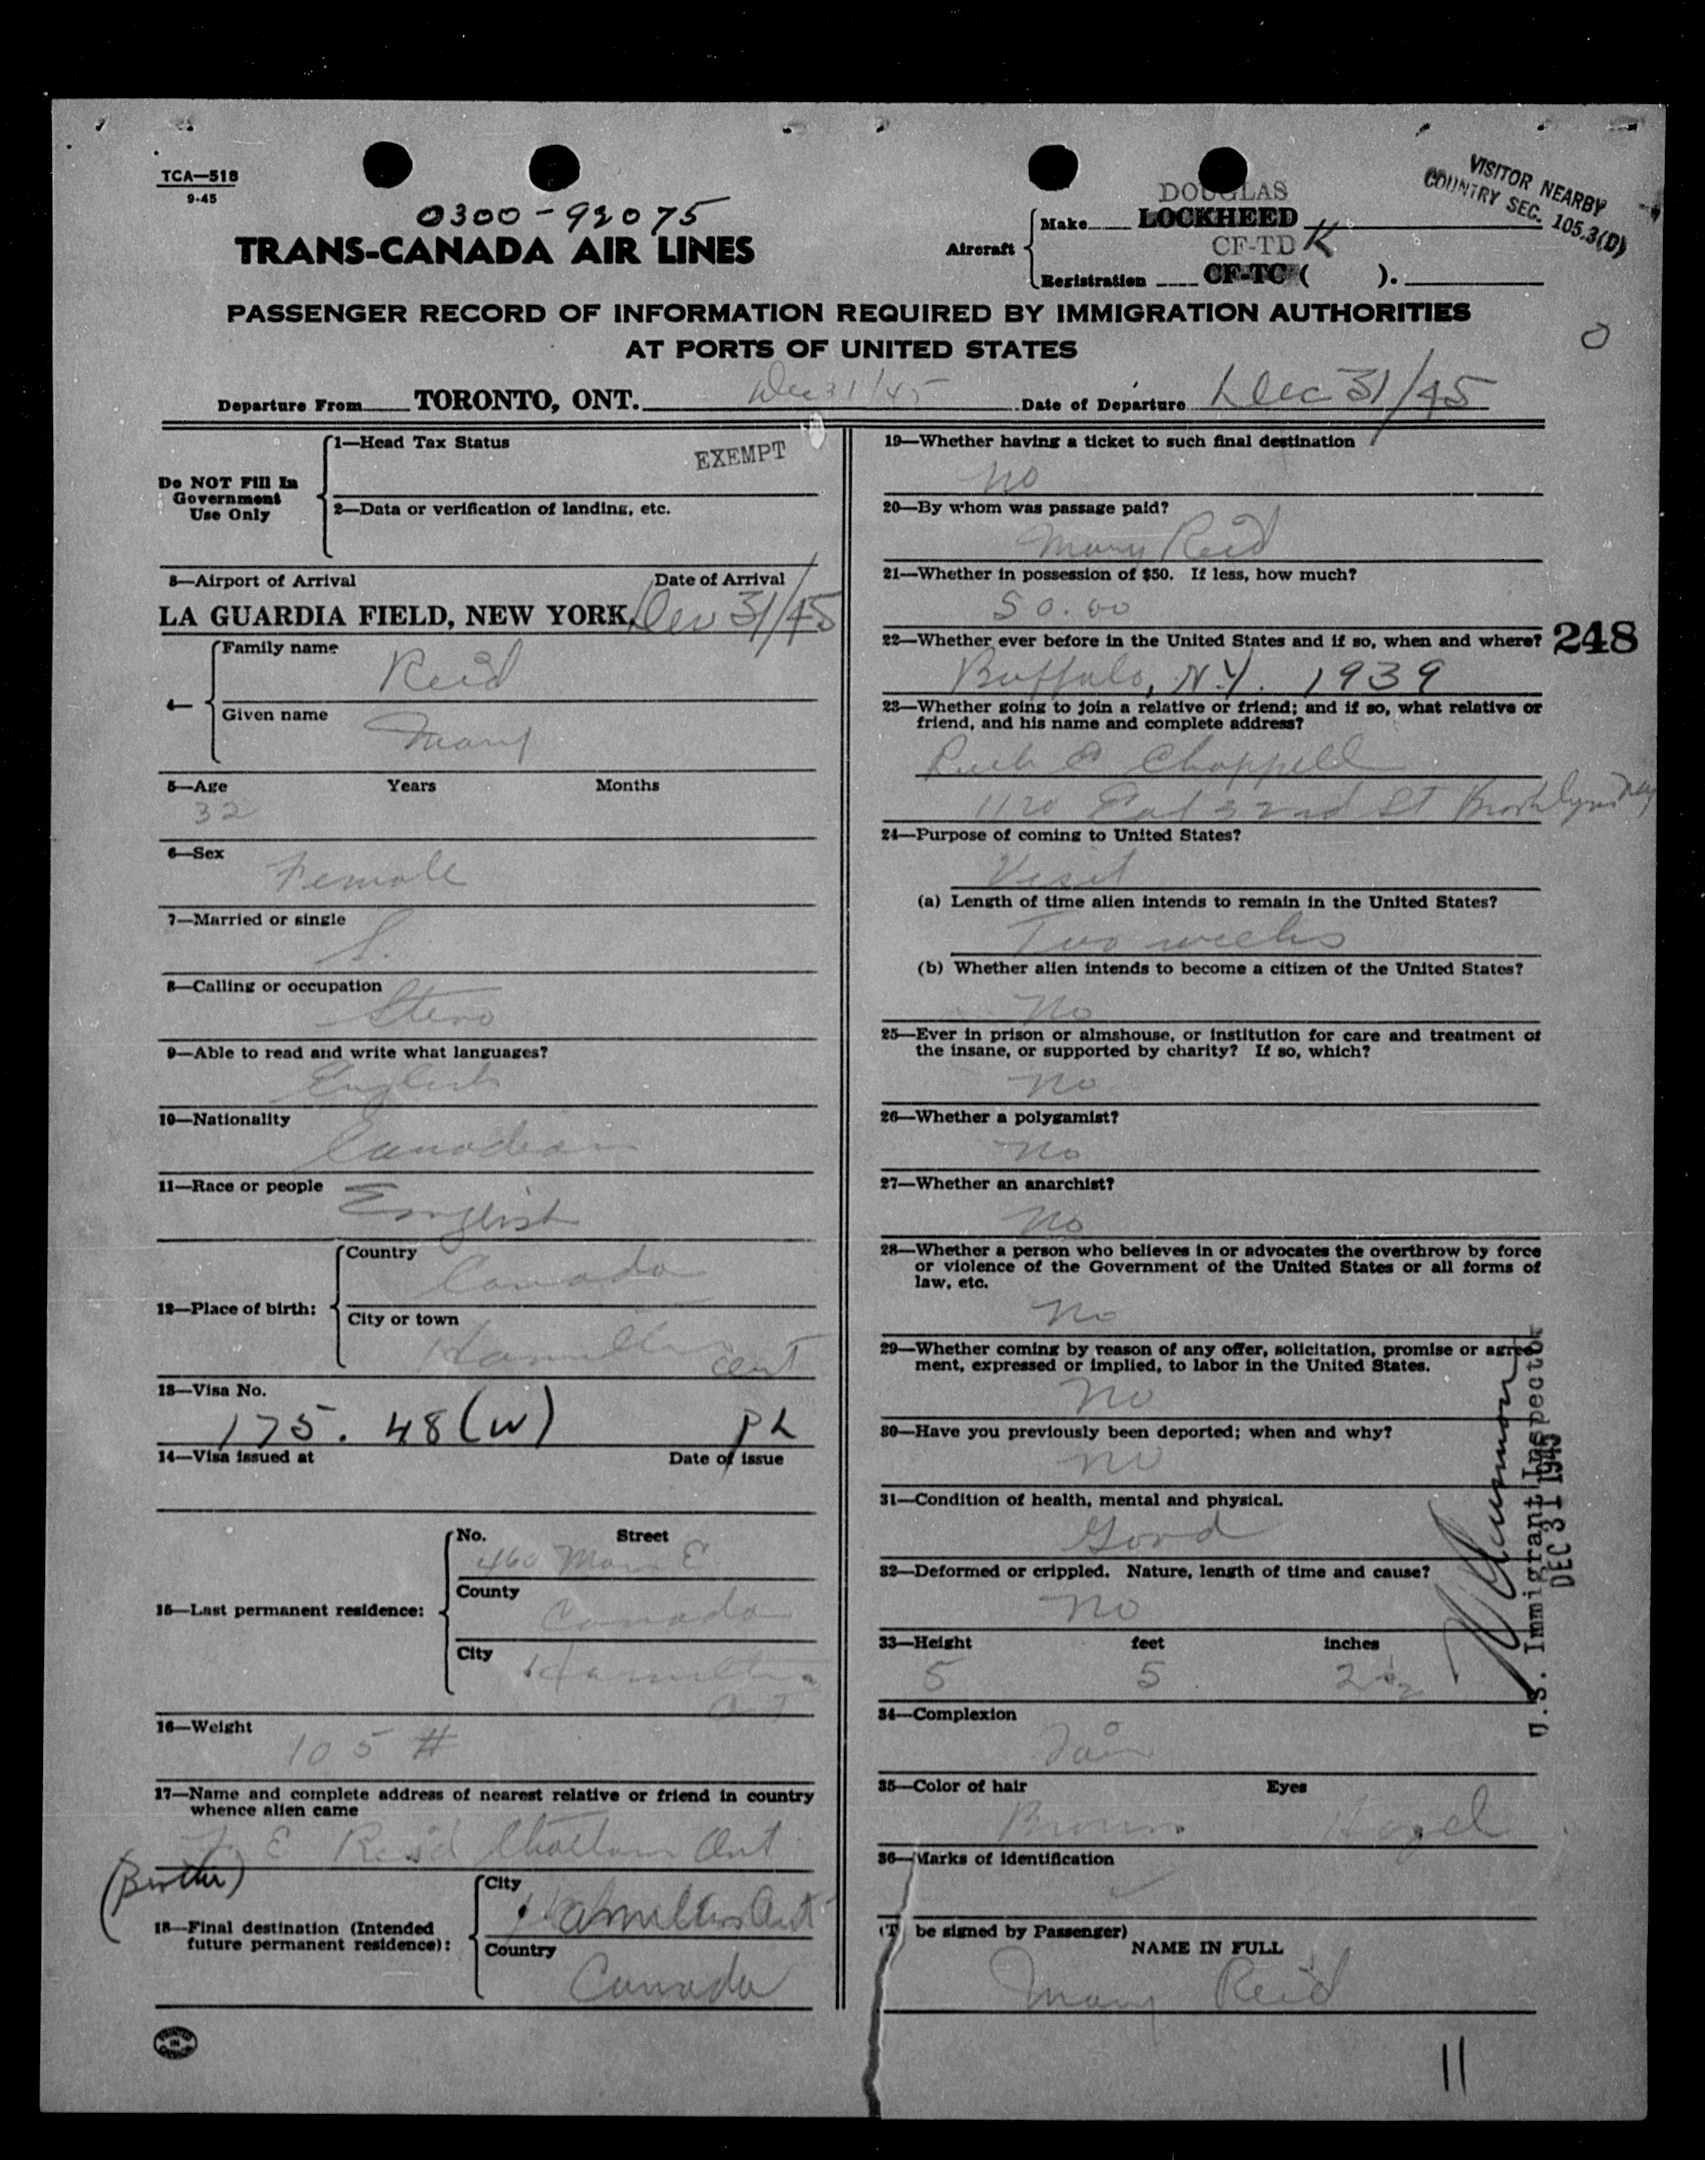 TCA—518
9-45
0300-92075
TRANS-CANADA AIR LINES
Aircraft
DOUGLAS
Make LOCKHEED
CF-TD K
Registration CF-TC ( ).
VISITOR NEARBY
COUNTRY SEC. 105.3(D)
PASSENGER RECORD OF INFORMATION REQUIRED BY IMMIGRATION AUTHORITIES
AT PORTS OF UNITED STATES
0
Departure From TORONTO, ONT. Dec 31/45 Date of Departure Dec 31/45
Do NOT Fill In
Government
Use Only
1—Head Tax Status
EXEMPT
2—Data or verification of landing, etc.
3—Airport of Arrival Date of Arrival
LA GUARDIA FIELD, NEW YORK. Dec 31/45
4—
Family name
Reid
Given name
Mary
5—Age Years Months
32
6—Sex
Female
7—Married or single
S.
8—Calling or occupation
Steno
9—Able to read and write what languages?
English
10—Nationality
Canadian
11—Race or people
English
12—Place of birth:
Country
Canada
City or town
Hamilton
Ont
13—Visa No.
175. 48 (W) PL
14—Visa issued at Date of issue
15—Last permanent residence:
No. Street
460 Main E
County
Canada
City
Hamilton
Ont
16—Weight
105 #
17—Name and complete address of nearest relative or friend in country
whence alien came
E Reid Chatham Ont
(Brother)
18—Final destination (Intended
future permanent residence):
City
Hamilton Ont
Country
Canada
PRINTED
IN
CANADA
19—Whether having a ticket to such final destination
no
20—By whom was passage paid?
Mary Reid
21—Whether in possession of $50. If less, how much?
50.00
22—Whether ever before in the United States and if so, when and where?
248
Buffalo, N.Y. 1939
23—Whether going to join a relative or friend; and if so, what relative or
friend, and his name and complete address?
Chappell
1120 East 32nd St Brooklyn NY
24—Purpose of coming to United States?
Visit
(a) Length of time alien intends to remain in the United States?
Two weeks
(b) Whether alien intends to become a citizen of the United States?
No
25—Ever in prison or almshouse, or institution for care and treatment of
the insane, or supported by charity? If so, which?
no
26—Whether a polygamist?
no
27—Whether an anarchist?
no
28—Whether a person who believes in or advocates the overthrow by force
or violence of the Government of the United States or all forms of
law, etc.
no
29—Whether coming by reason of any offer, solicitation, promise or agree-
ment, expressed or implied, to labor in the United States.
no
30—Have you previously been deported; when and why?
no
31—Condition of health, mental and physical.
Good
32—Deformed or crippled. Nature, length of time and cause?
no
33—Height feet inches
5 5 2 1/2
34—Complexion
Fair
35—Color of hair Eyes
Brown Hazel
36—Marks of identification
U.S. Immigrant Inspector
DEC 31 1945
(T be signed by Passenger)
NAME IN FULL
Mary Reid
11